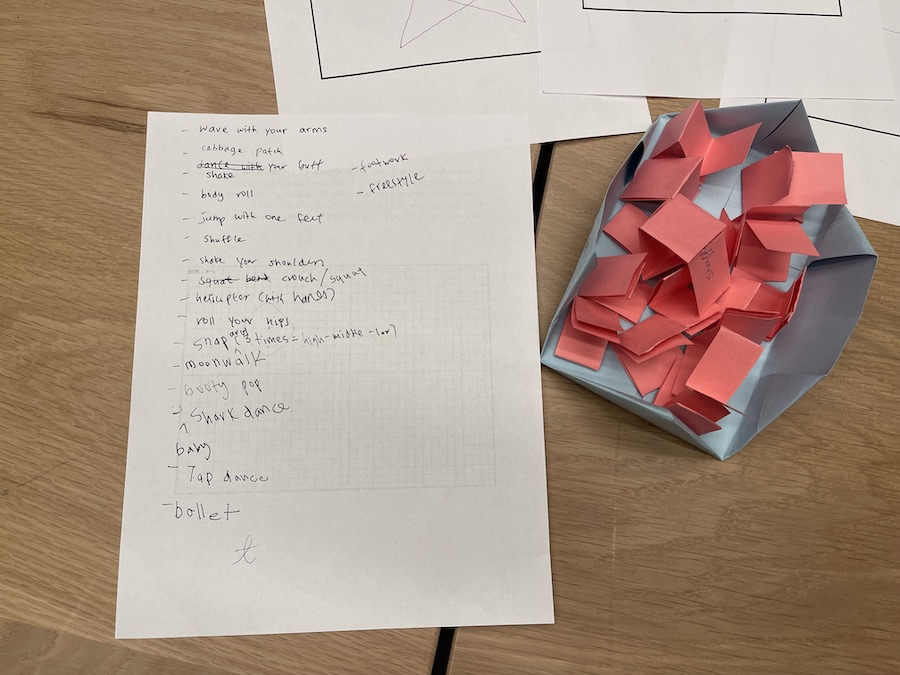 - wave with your arms
- cabbage patch
- dance with your butt
shake
- body roll
- jump with one feet
- shuffle
- shake your shoulders
- squat bend crouch/squat
- helicopter (with hands)
- roll your hips
- snap arms (3 times = high-middle-low)
- moonwalk
- booty pop
- shark dance
^
baby
- Tap dance
- ballet
t
- footwork
- freestyle